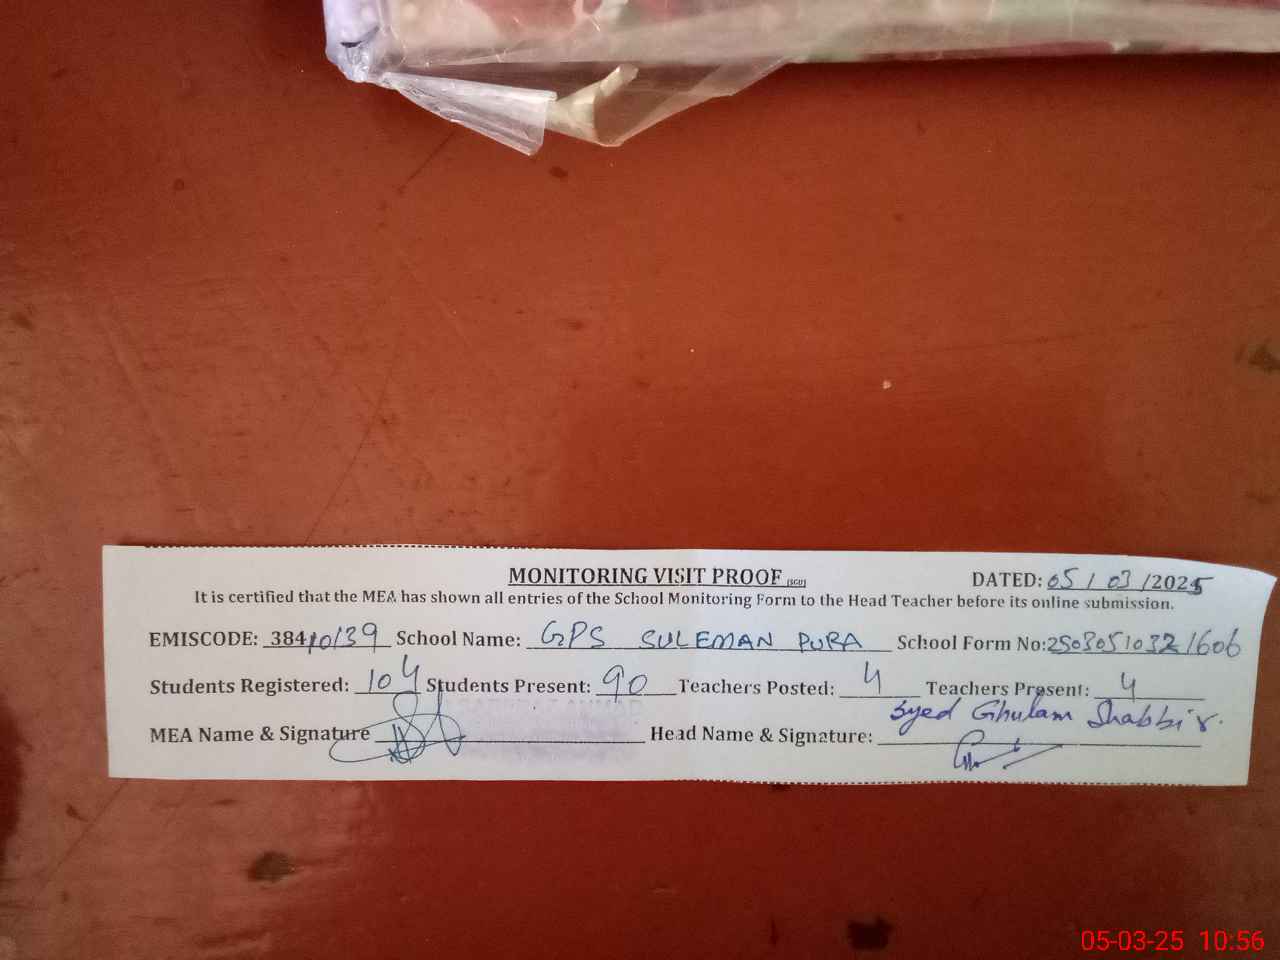 MONITORING VISIT PROOF (SGD) DATED: 05/03/2025
It is certified that the MEA has shown all entries of the School Monitoring Form to the Head Teacher before its online submission.
EMISCODE: 38410139 School Name: GPS SULEMAN PURA School Form No: 25030510321606
Students Registered: 104 Students Present: 90 Teachers Posted: 4 Teachers Present: 4
MEA Name & Signature Head Name & Signature: Syed Ghulam Shabbir.
05-03-25 10:56